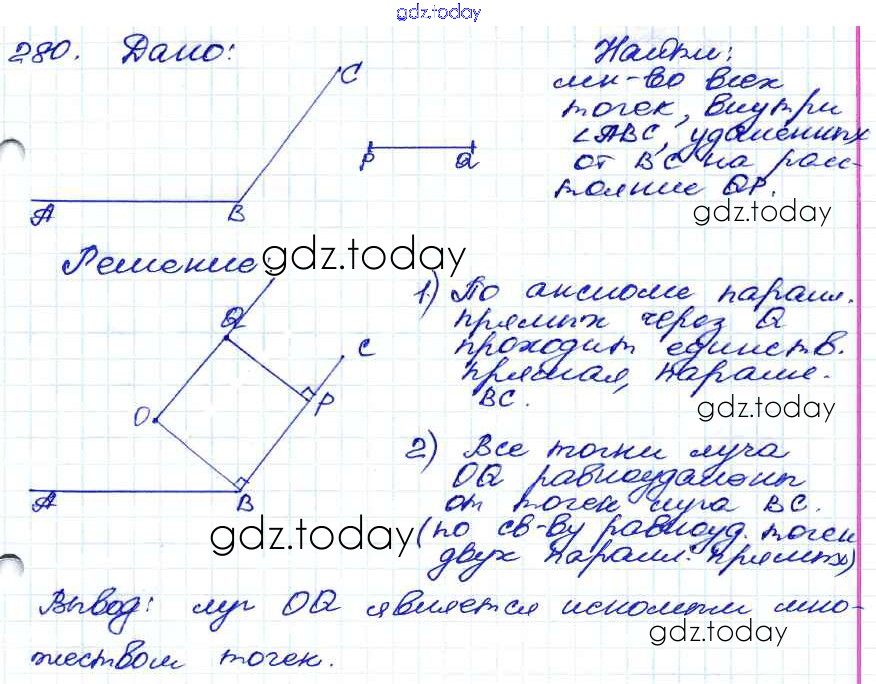 gdz.today
280. Дано:
A
B
C
P
Q
Найти:
мн-во всех
точек, внутри
∠ABC, удаленных
от BC на расс-
тояние QP.
gdz.today
Решение:
gdz.today
Q
C
P
O
A
B
1) По аксиоме паралл.
прямых через Q
проходит единств.
прямая, паралле.
BC.
gdz.today
2) Все точки луча
OQ равноудалены
от точек луча BC.
(по св-ву равноуд. точек
двух паралл. прямых)
gdz.today
Вывод: луч OQ является искомым мно-
жеством точек.
gdz.today